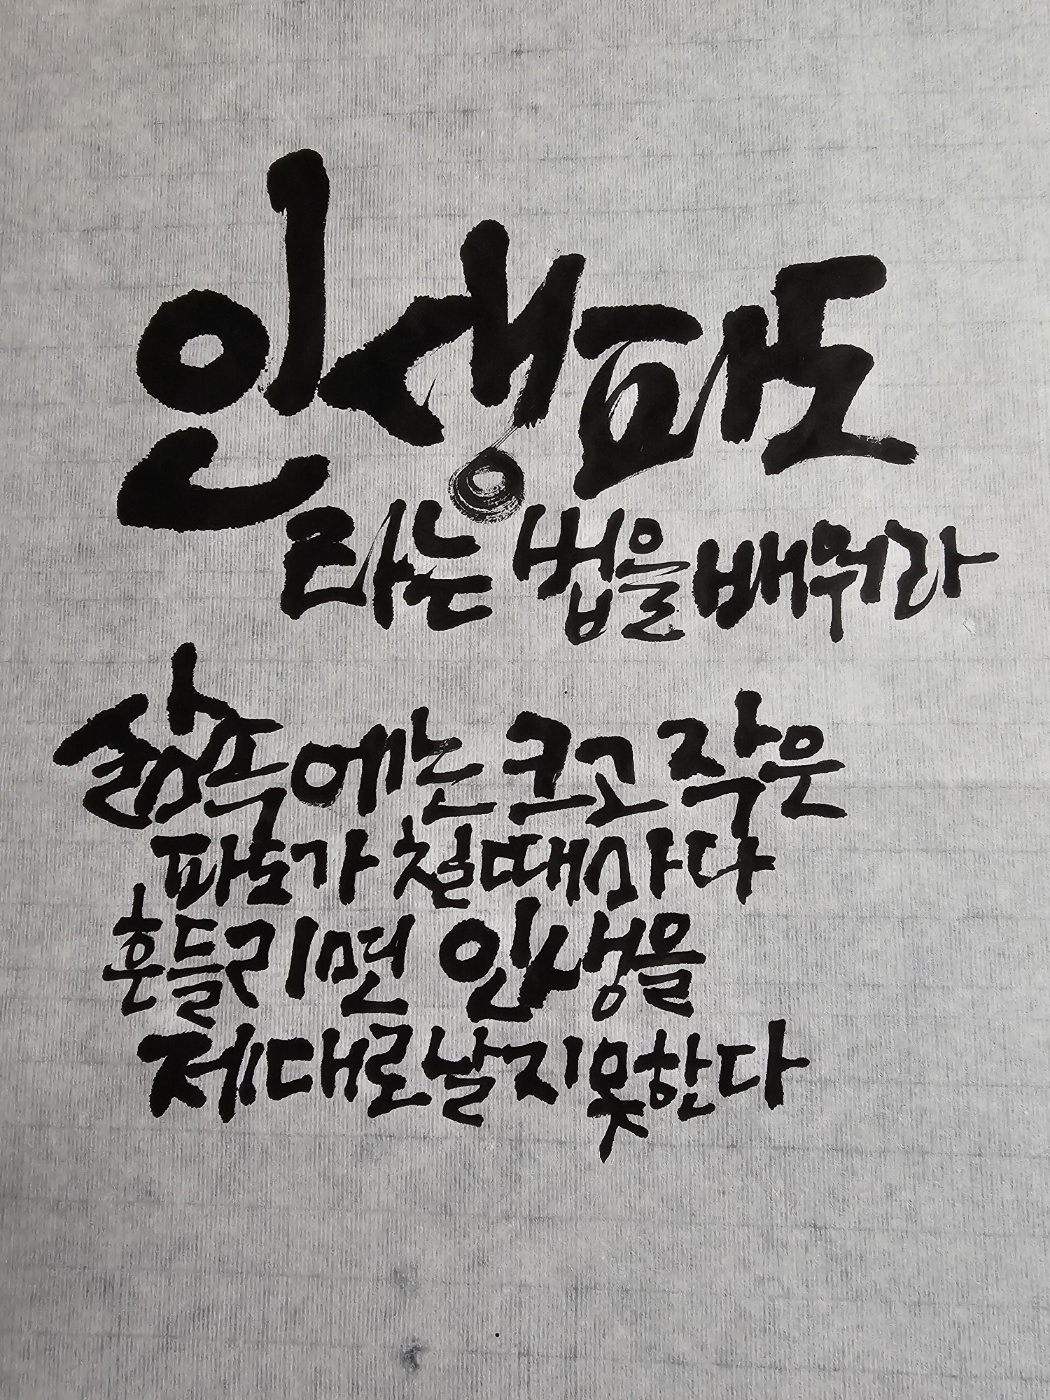 인생파도
타는 법을 배워라
삶속에는 크고 작은
파도가 칠때마다
흔들리면 인생을
제대로 날지 못한다